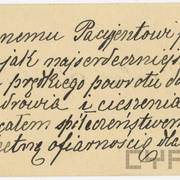 nemu Pacyentowi
jak najserdeczniej
prędkiego powrotu do
zdrowia i cieszenia
całem społeczeństwem
ofiarność dla
CYF